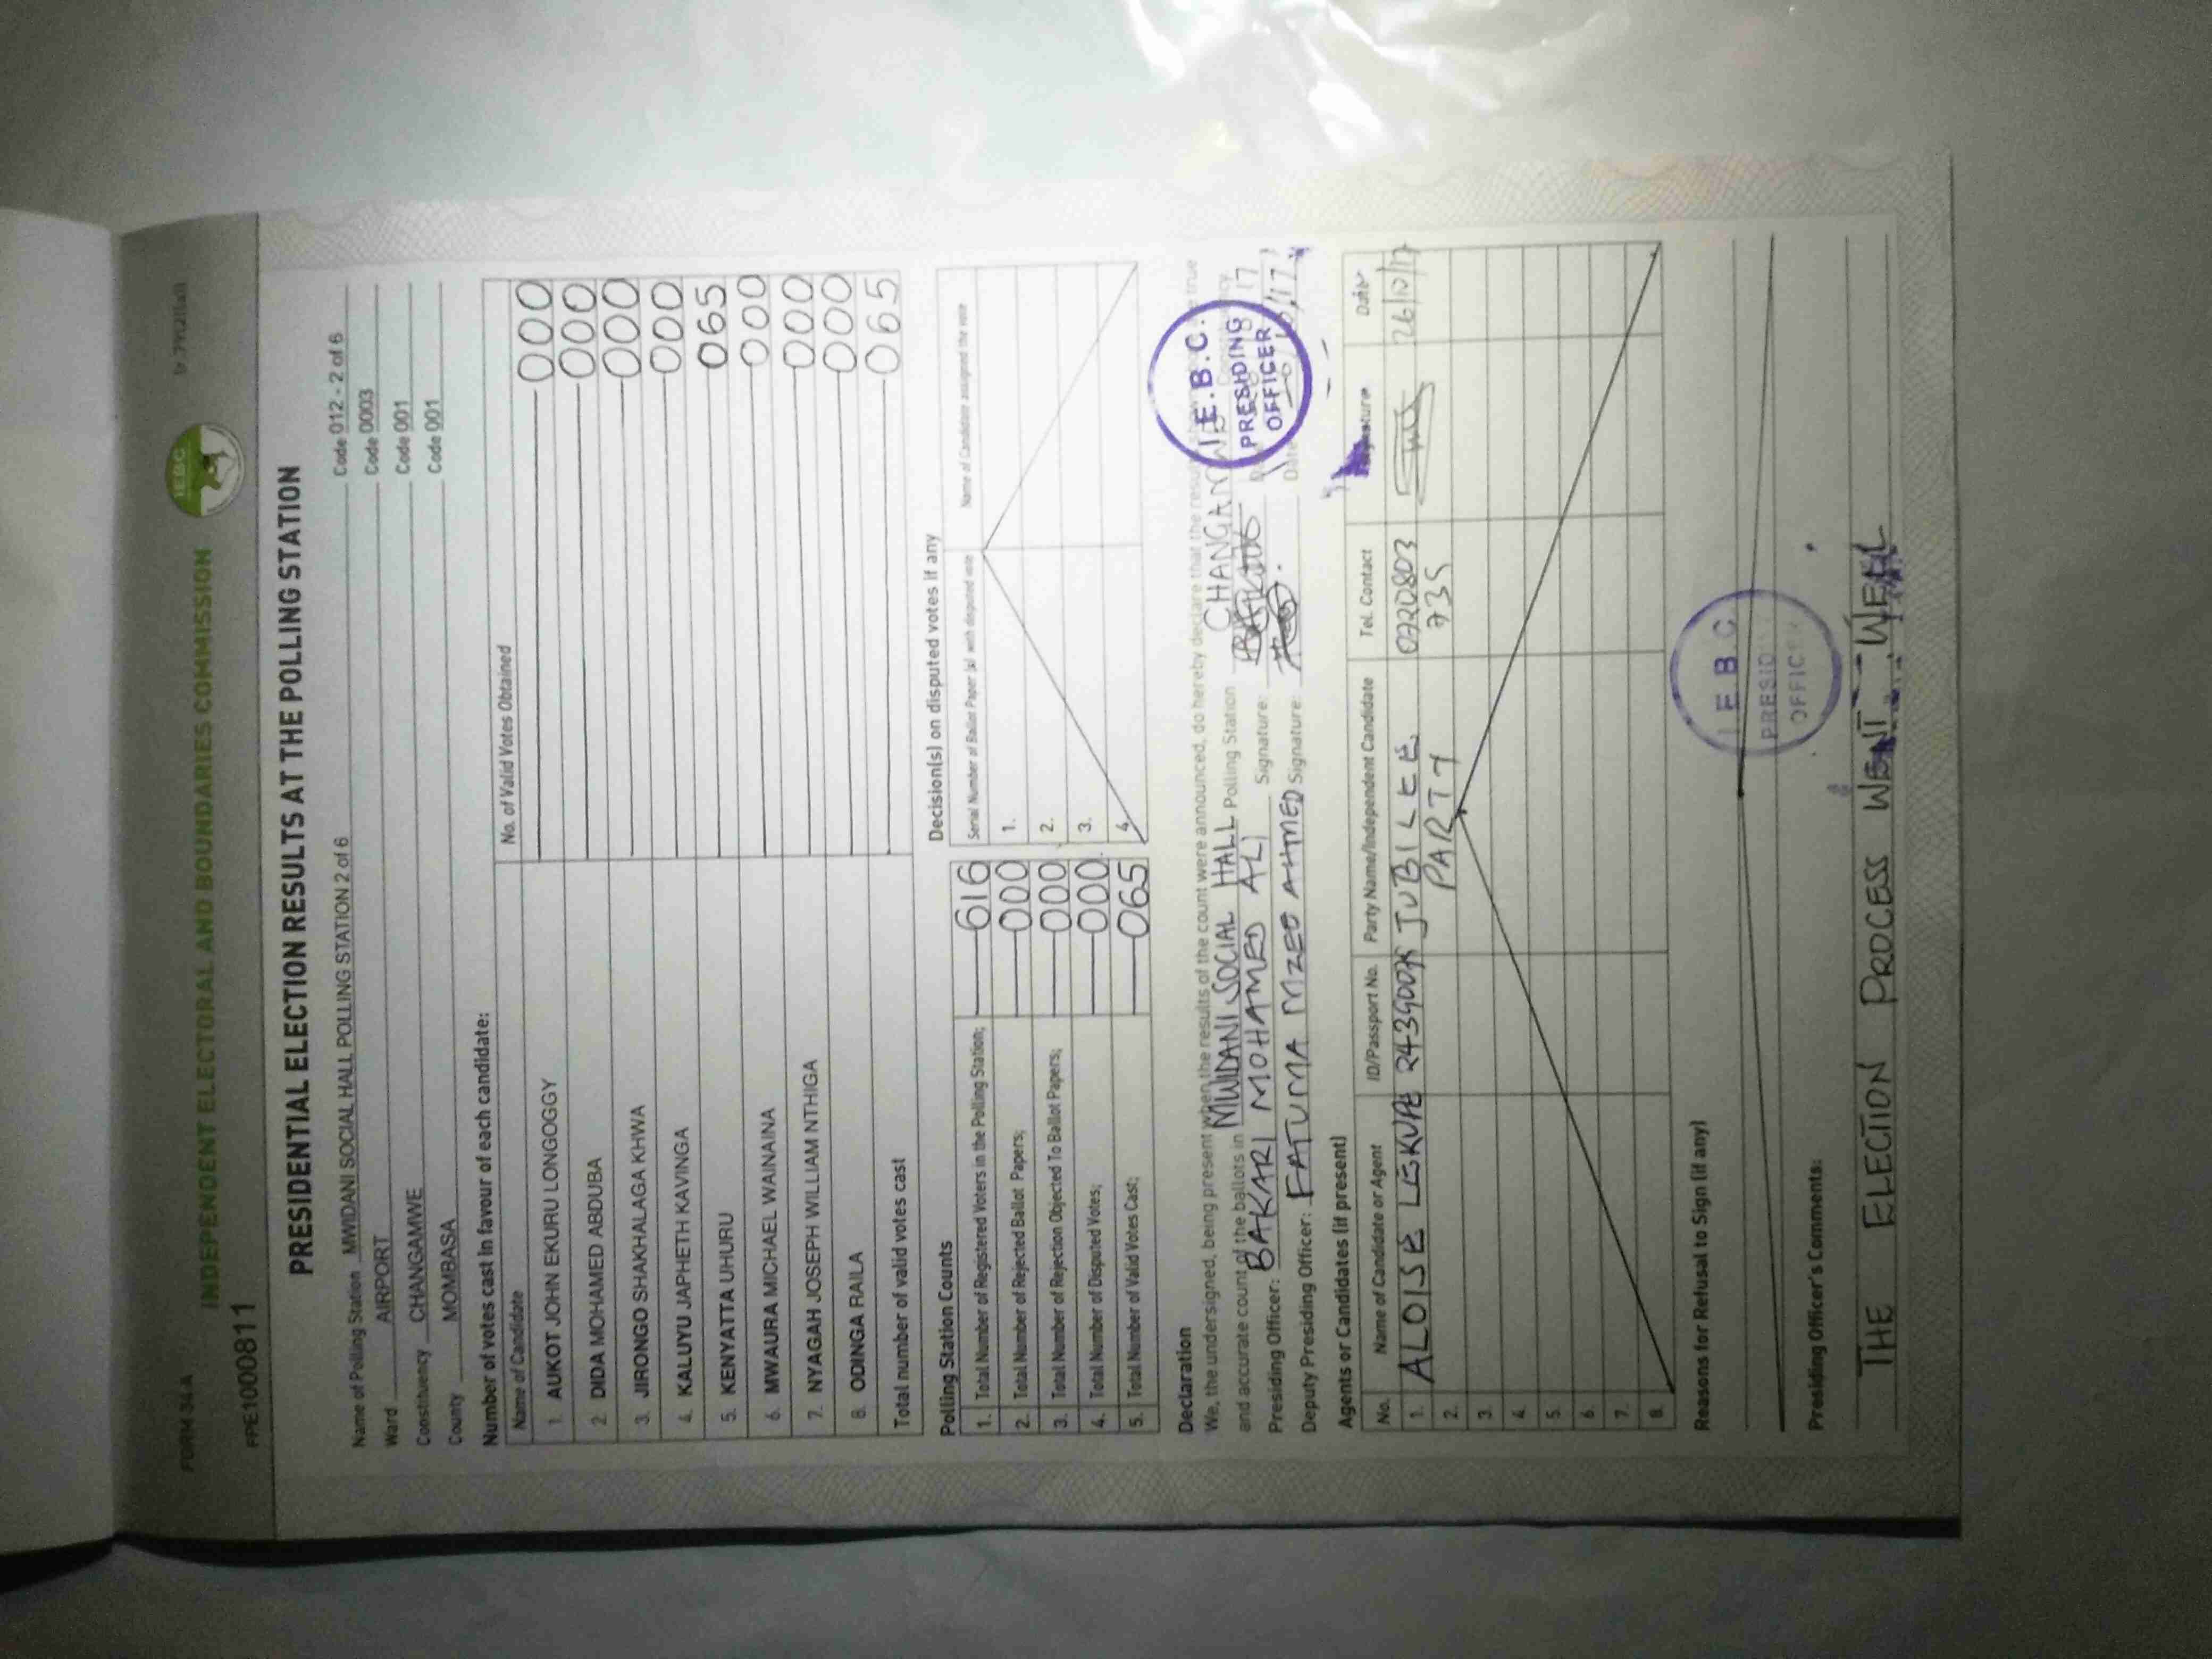 FORM 34 A
INDEPENDENT ELECTORAL AND BOUNDARIES COMMISSION
IEBC
FPE1000811
PRESIDENTIAL ELECTION RESULTS AT THE POLLING STATION
Name of Polling Station MWIDANI SOCIAL HALL POLLING STATION 2 of 6 Code 012 - 2 of 6
Ward AIRPORT Code 0003
Constituency CHANGAMWE Code 001
County MOMBASA Code 001
Number of votes cast in favour of each candidate:
Name of Candidate No. of Valid Votes Obtained
1. AUKOT JOHN EKURU LONGOGGY 000
2. DIDA MOHAMED ABDUBA 000
3. JIRONGO SHAKHALAGA KHWA 000
4. KALUYU JAPHETH KAVINGA 000
5. KENYATTA UHURU 065
6. MWAURA MICHAEL WAINAINA 000
7. NYAGAH JOSEPH WILLIAM NTHIGA 000
8. ODINGA RAILA 000
Total number of valid votes cast 065
Polling Station Counts
1. Total Number of Registered Voters in the Polling Station; 616
2. Total Number of Rejected Ballot Papers; 000
3. Total Number of Rejection Objected To Ballot Papers; 000
4. Total Number of Disputed Votes; 000
5. Total Number of Valid Votes Cast; 065
Decision(s) on disputed votes if any
Serial Number of Ballot Paper (s) with disputed vote Name of Candidate assigned the vote
1.
2.
3.
4.
Declaration
We, the undersigned, being present when the results of the count were announced, do hereby declare that the true
and accurate count of the ballots in MWIDANI SOCIAL HALL Polling Station
Presiding Officer: BAKARI MOHAMED ALI Signature:
Deputy Presiding Officer: FATUMA MZEO AHMED Signature:
I.E.B.C.
PRESIDING
OFFICER
Agents or Candidates (if present)
No. Name of Candidate or Agent ID/Passport No. Party Name/Independent Candidate Tel. Contact Signature Date
1. ALOISE LEKUPE JUBILEE 0720803 26/10/17
2. PARTY 735
3.
4.
5.
6.
7.
8.
Reasons for Refusal to Sign (if any)
I.E.B.C.
PRESID
OFFIC
Presiding Officer's Comments:
THE ELECTION PROCESS WENT WELL